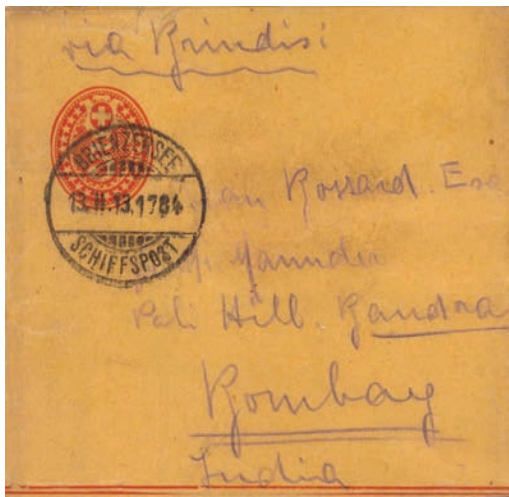 via Brindisi
BRIENZERSEE
13.II.13.1784
SCHIFFSPOST
Rossard. Esq
Pali Hill. Bandra
Bombay
India